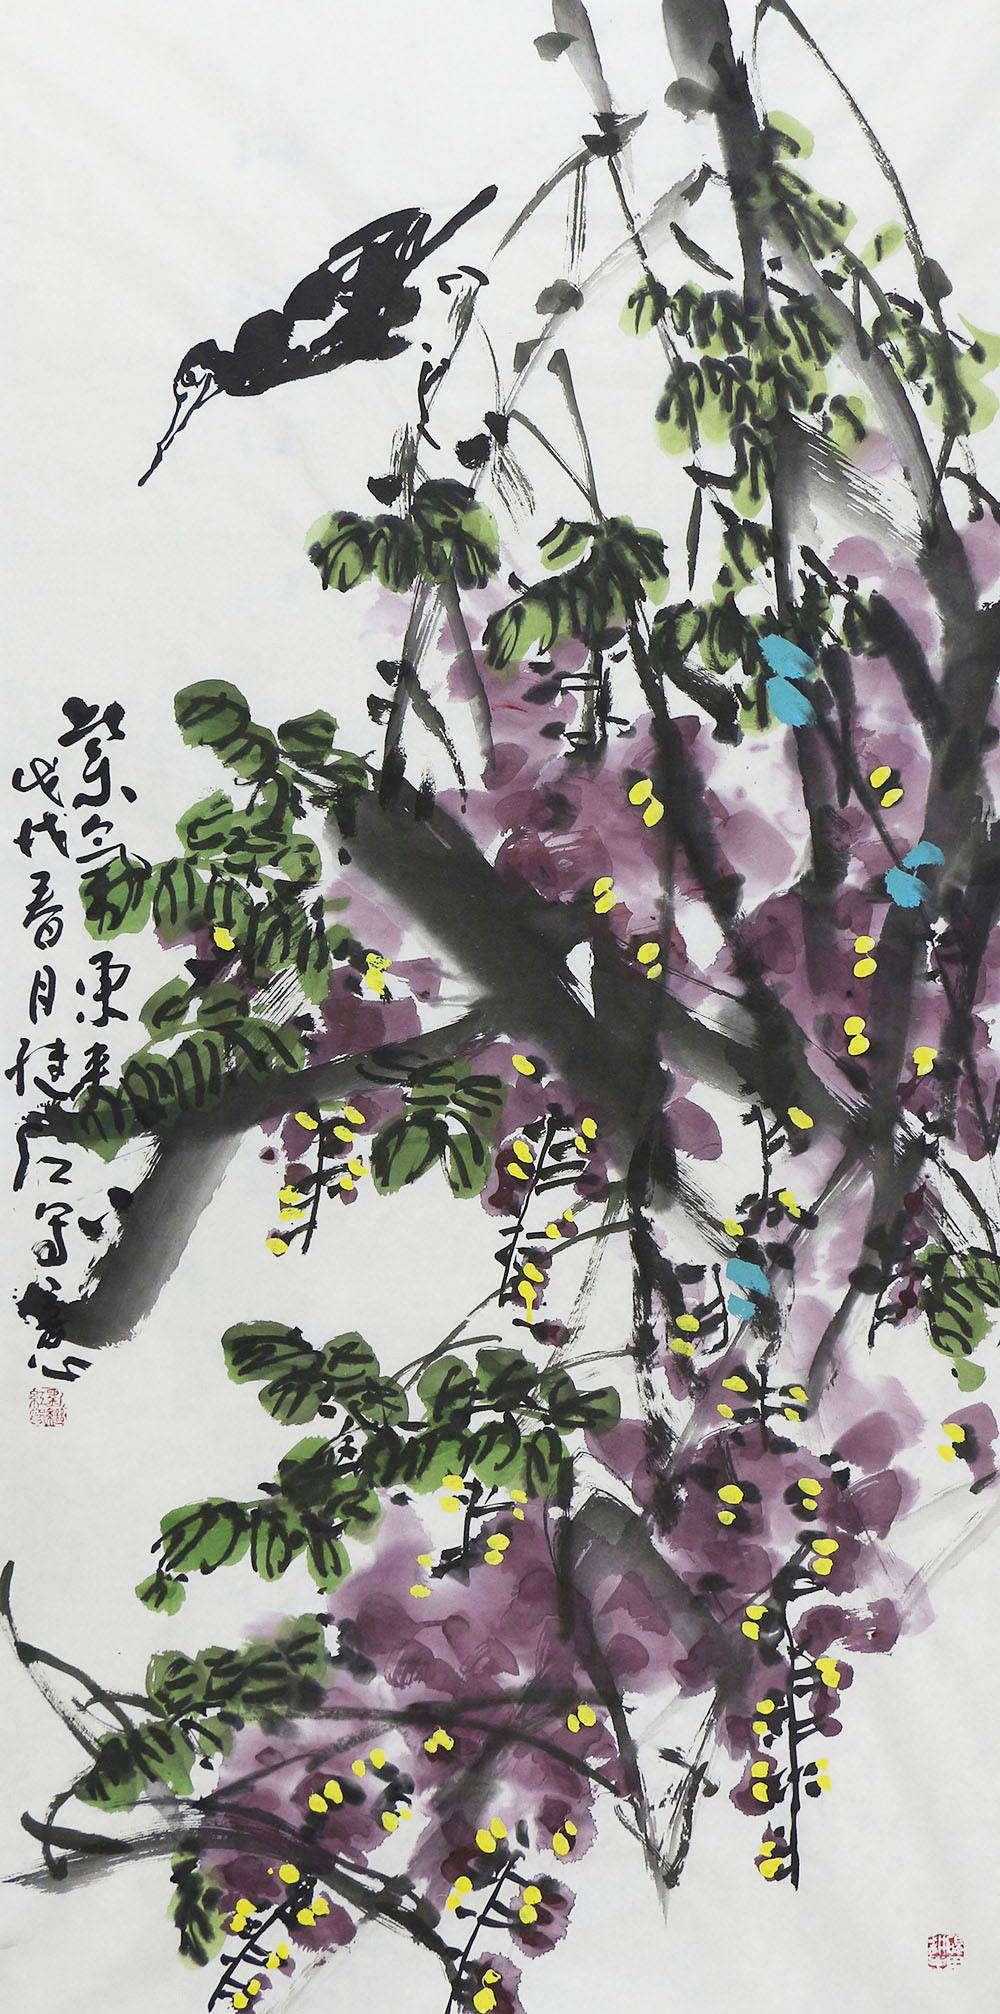 紫气东来
戊戌春月健江写意